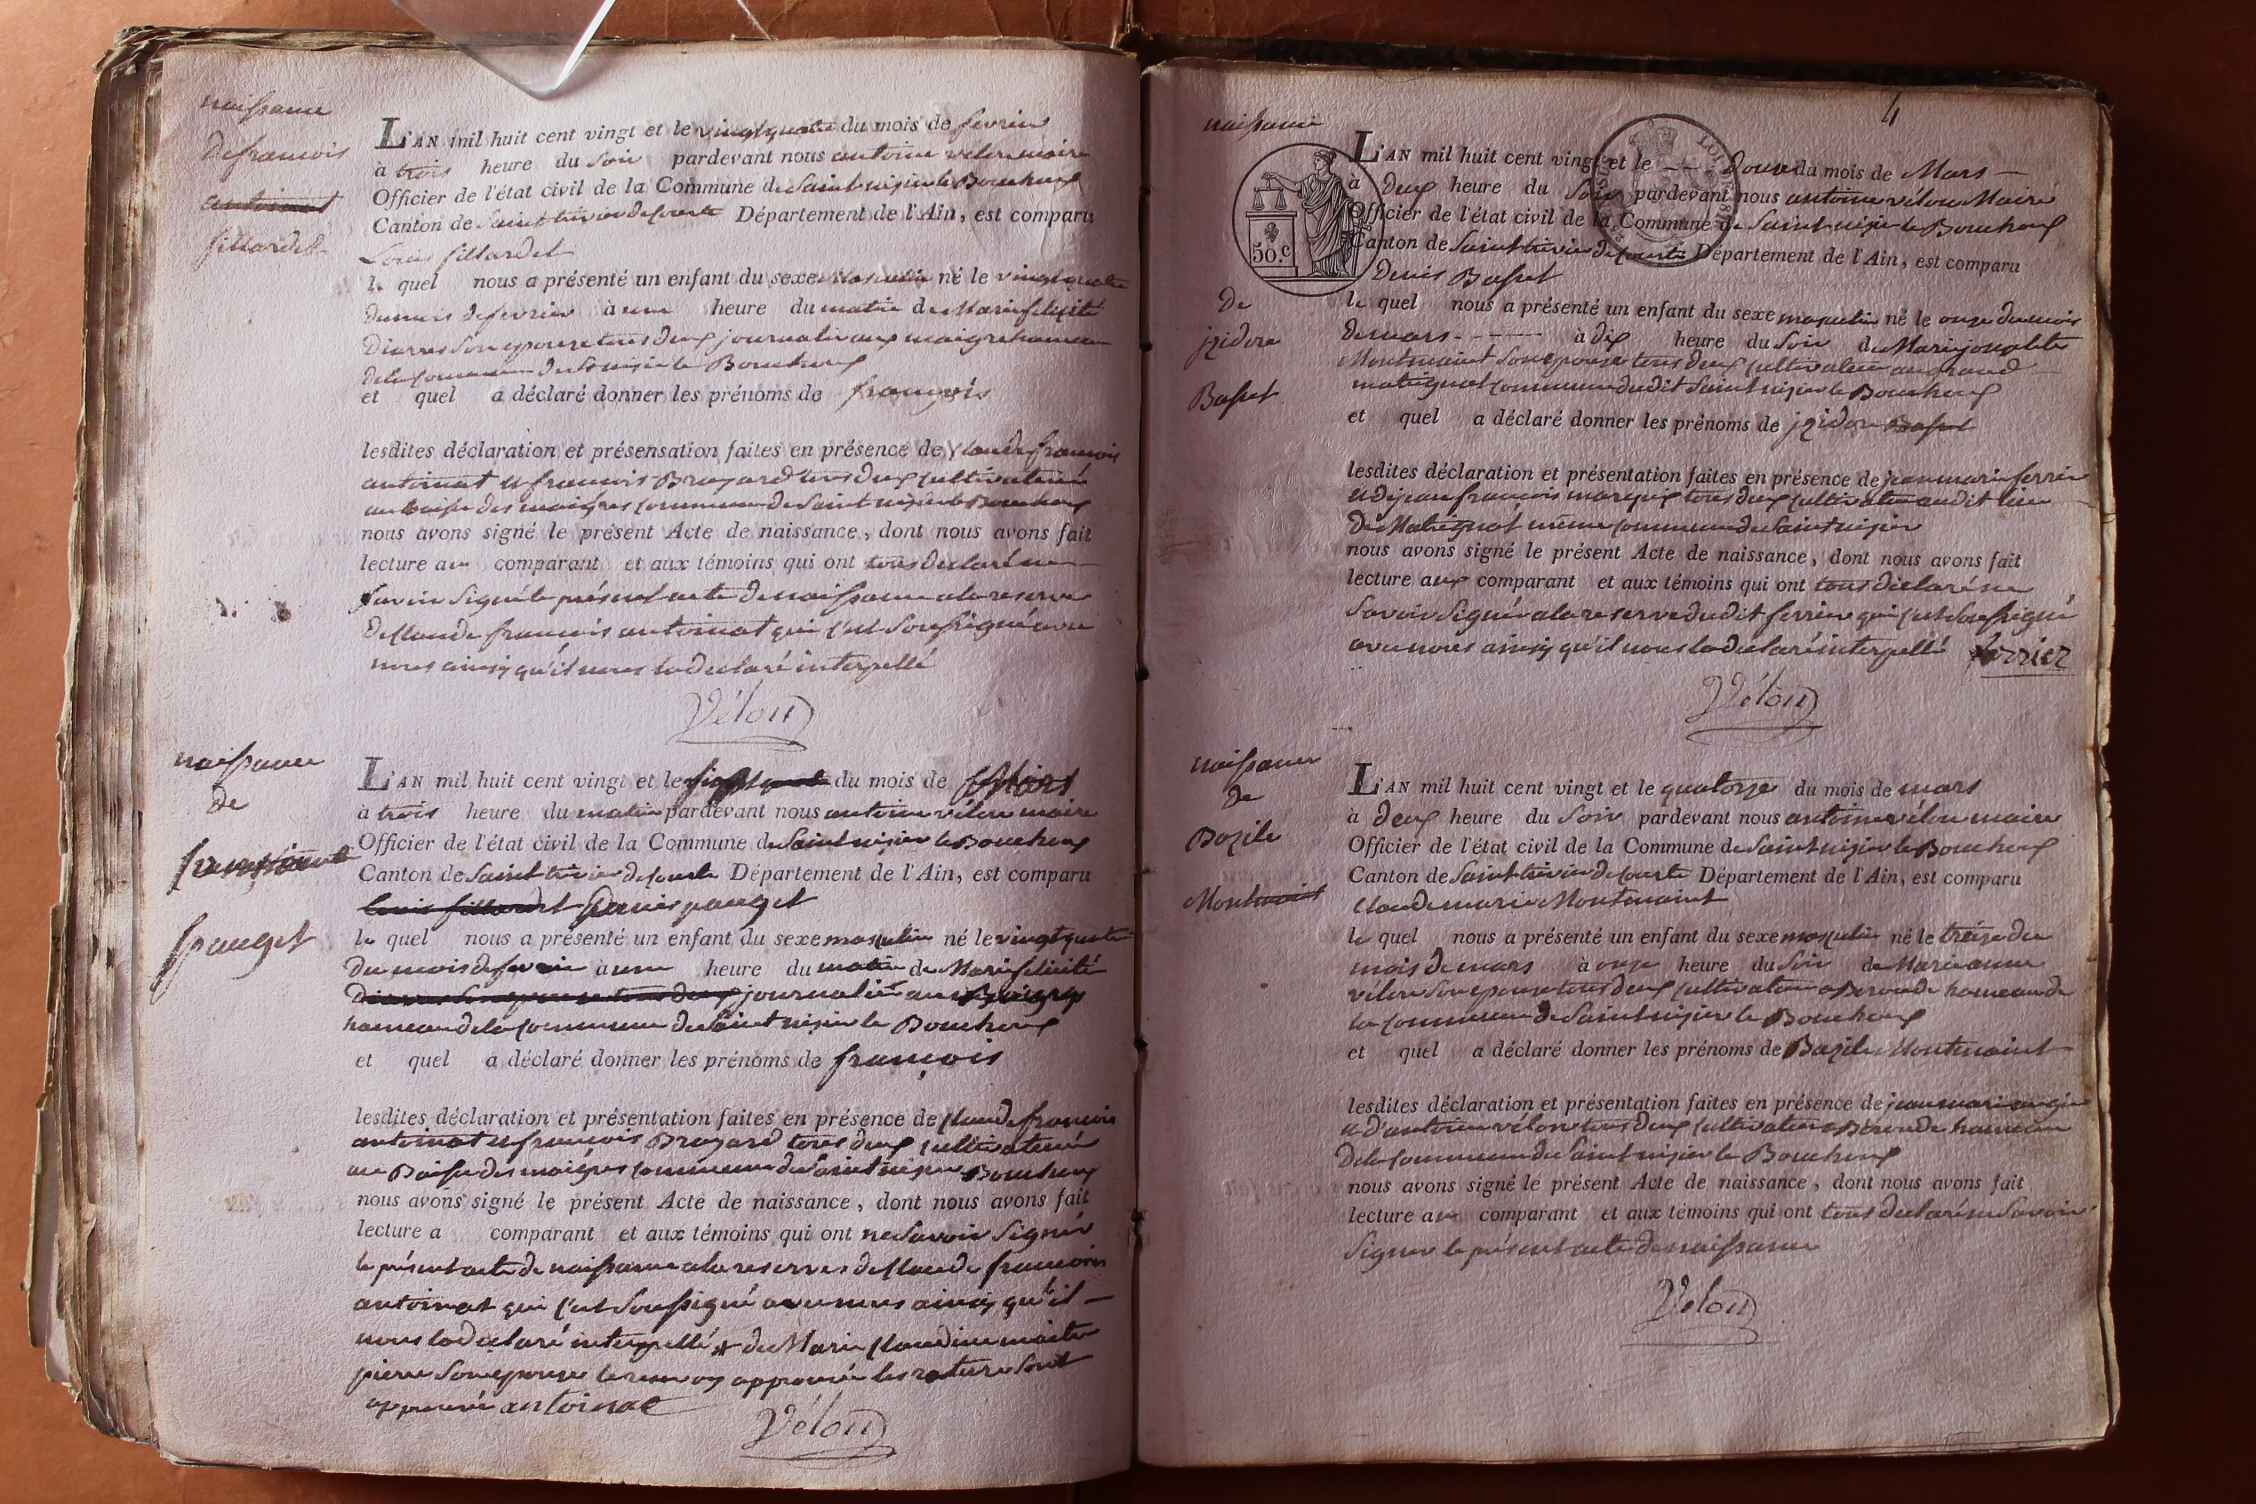 naissance
de francois
antoinat
fillardet
L'AN mil huit cent vingt et le vingt quatre du mois de fevrier
à trois heure du soir pardevant nous antoine vélon maire
Officier de l'état civil de la Commune de Saint nizier le Bouchoux
Canton de Saint trivier de courte Département de l'Ain, est comparu
Louis fillardet
le quel nous a présenté un enfant du sexe Masculin né le vingt quatre
du mois de fevrier à une heure du matin de Marie felicité
son epouse tous deux journalier aux maigre hameau
de la commune de St nizier le Bouchoux
et quel a déclaré donner les prénoms de françois
lesdites déclaration et présensation faites en présence de claude francois
antoinat et francois Broyard tous deux cultivateur
au des maigres commune de Saint nizier le Bouchoux
nous avons signé le présent Acte de naissance, dont nous avons fait
lecture au comparant et aux témoins qui ont tous declaré ne
savoir signé le présent acte de naissance a la reserve
de claude francois antoinat qui c'est soussigné avec
nous ainsy qu'il nous la declaré interpellé
Vélon
naissance
de
pauget
L'AN mil huit cent vingt et le du mois de Mars
à trois heure du matin pardevant nous antoine vélon maire
Officier de l'état civil de la Commune de Saint nizier le Bouchoux
Canton de Saint trivier de courte Département de l'Ain, est comparu
Louis fillardet Denis pauget
le quel nous a présenté un enfant du sexe masculin né le vingt quatre
du mois de fevrier à une heure du matin de Marie felicité
son epouse tous deux journalier aux
hameau de la commune de Saint nizier le Bouchoux
et quel a déclaré donner les prénoms de françois
lesdites déclaration et présentation faites en présence de claude francois
antoinat et francois Broyard tous deux cultivateur
au des maigres commune de Saint nizier Bouchoux
nous avons signé le présent Acte de naissance, dont nous avons fait
lecture a comparant et aux témoins qui ont ne savoir signér
le présent acte de naissance a la reserve de claude francois
antoinat qui c'est soussigné avec nous ainsy qu'il
nous la declaré interpellé * de Marie claudine maitre
pierre son epouse le renvoy approuvé les rature sont
approuvé antoinat
Vélon
4
naissance
de
jzidore
Basset
50.c
L'AN mil huit cent vingt et le douze du mois de Mars
à deux heure du soir pardevant nous antoine vélon Maire
Officier de l'état civil de la Commune de Saint nizier le Bouchoux
Canton de Saint trivier de courte Département de l'Ain, est comparu
Denis Basset
le quel nous a présenté un enfant du sexe masculin né le onze du mois
de mars à dix heure du soir de Marie josephte
Montmaint son epouse tous deux cultivateur au grand
matrignat commune dudit Saint nizier le Bouchoux
et quel a déclaré donner les prénoms de jzidore Basset
lesdites déclaration et présentation faites en présence de jean marie ferrier
et de jean francois marquis tous deux cultivateur audit lieu
de Matrignat même commune de Saint nizier
nous avons signé le présent Acte de naissance, dont nous avons fait
lecture aux comparant et aux témoins qui ont tous declaré ne
savoir signér a la reserve dudit ferrier qui c'est soussigné
avec nous ainsy qu'il nous la declaré interpellé ferrier
Vélon
naissance
de
Bazile
Montmaint
L'AN mil huit cent vingt et le quatorze du mois de mars
à deux heure du soir pardevant nous antoine vélon maire
Officier de l'état civil de la Commune de Saint nizier le Bouchoux
Canton de Saint trivier de courte Département de l'Ain, est comparu
Claude marie Montmaint
le quel nous a présenté un enfant du sexe masculin né le treize du
mois de mars à onze heure du soir de Marie anne
vélon son epouse tous deux cultivateur a Beronde hameau de
la commune de Saint nizier le Bouchoux
et quel a déclaré donner les prénoms de Bazile Montmaint
lesdites déclaration et présentation faites en présence de jean marie
et d'antoine vélon tous deux cultivateur a Beronde hameau
de la commune de Saint nizier le Bouchoux
nous avons signé le présent Acte de naissance, dont nous avons fait
lecture au comparant et aux témoins qui ont tous declaré ne savoir
signer le présent acte de naissance
Vélon